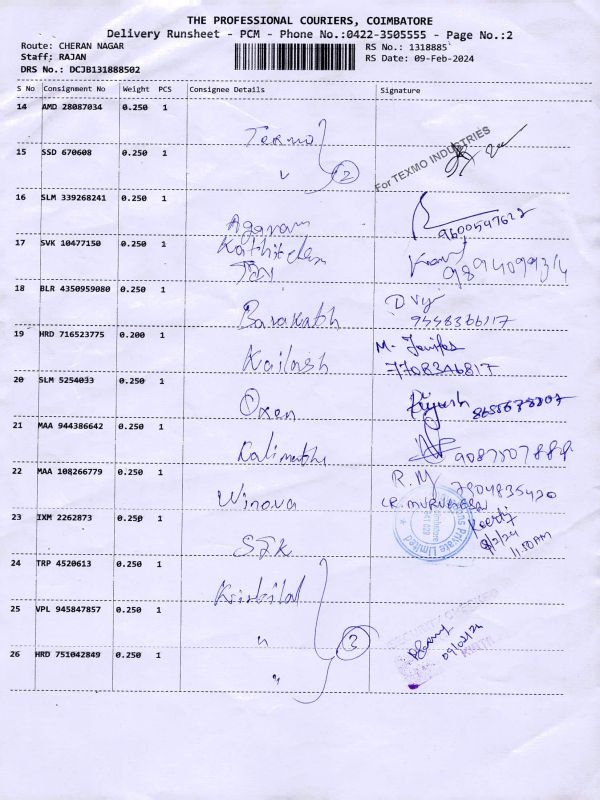 THE PROFESSIONAL COURIERS, COIMBATORE
Delivery Runsheet - PCM - Phone No.:0422-3505555 - Page No.:2
Route: CHERAN NAGAR
RS No.: 1318885
Staff: RAJAN
RS Date: 09-Feb-2024
DRS No.: DCJB131888502
S No Consignment No Weight PCS Consignee Details Signature
14 AMD 28087034 0.250 1
Texmo
15 SSD 670608 0.250 1
" 2
For TEXMO INDUSTRIES
16 SLM 339268241 0.250 1
Agaram
9600547622
17 SVK 10477150 0.250 1
18 BLR 4350959080 0.250 1
Barakath
19 HRD 716523775 0.200 1
Kailash
7708346817
20 SLM 5254033 0.250 1
Oxen
21 MAA 944386642 0.250 1
22 MAA 108266779 0.250 1
Winova
R.M 7904835420
23 IXM 2262873 0.250 1
9/2/24
11.50 AM
Private Limited
24 TRP 4520613 0.250 1
25 VPL 945847857 0.250 1
" 3
09/02/24
26 HRD 751042849 0.250 1
"